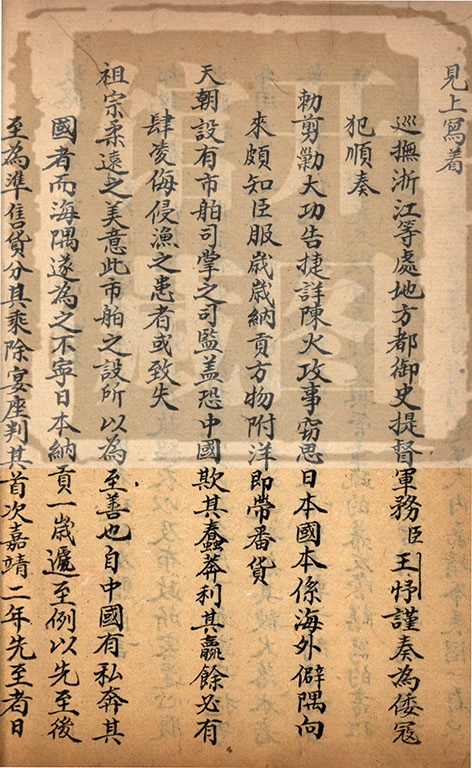 見上寫着
巡撫浙江等處地方都御史提督軍務臣王忬謹奏為倭寇
犯順奏
勅剪勦大功告捷詳陳火攻事竊思日本國本係海外僻隅向
來頗知臣服歲歲納貢方物附洋即帶番貨
天朝設有市舶司掌之司監盖恐中國欺其蠢莽利其贏餘必有
肆凌侮侵漁之患者或致失
祖宗柔遠之美意此市舶之設所以為至善也自中國有私奔其
國者而海隅遂為之不寧日本納貢一歲遞至例以先至後
至為準售貨分其乘除宴座判其首次嘉靖二年先至者日